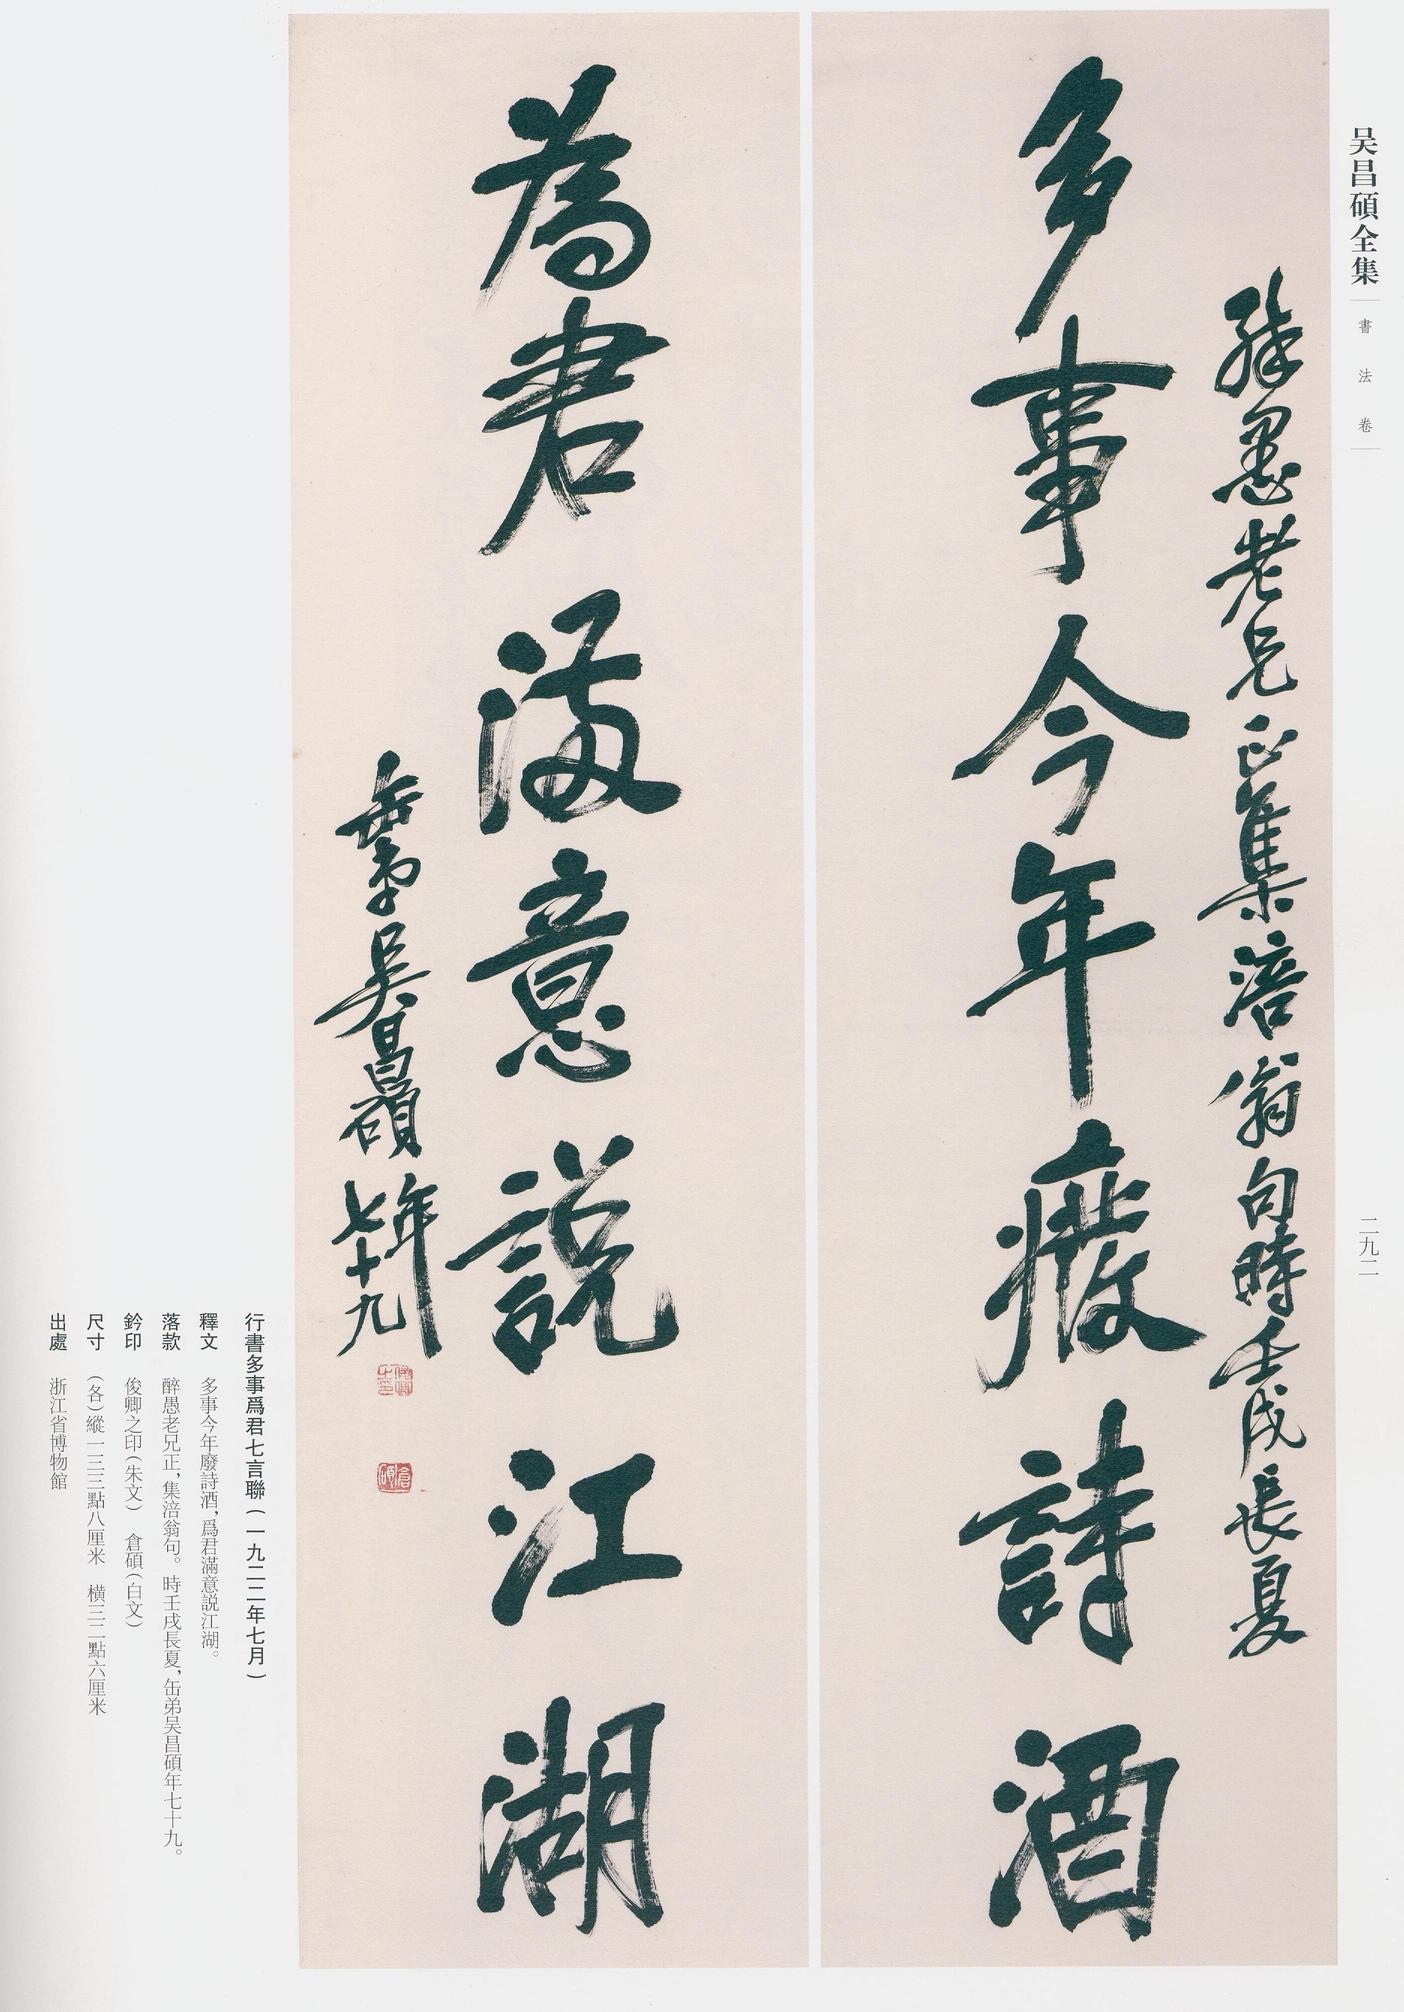 吴昌碩全集
書法卷
二九二
醉愚老兄正集涪翁句時壬戌長夏
多事今年癈詩酒
為君滿意説江湖
缶弟吳昌碩年
七十九
俊卿之印
倉碩
行書多事爲君七言聯(一九二二年七月)
釋文 多事今年廢詩酒,爲君滿意説江湖。
落款 醉愚老兄正,集涪翁句。時壬戌長夏,缶弟吴昌碩年七十九。
鈐印 俊卿之印(朱文) 倉碩(白文)
尺寸 (各)縱一三三點八厘米 橫三二點六厘米
出處 浙江省博物館